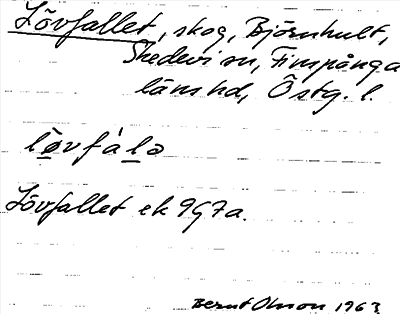 Lövfallet, skog, Björnhult,
Skedevi sn, Finspånga
läns hd, Östg. l.
lø̀vfàlə
Lövfallet ek 9G7a.
Bernt Olsson 1963